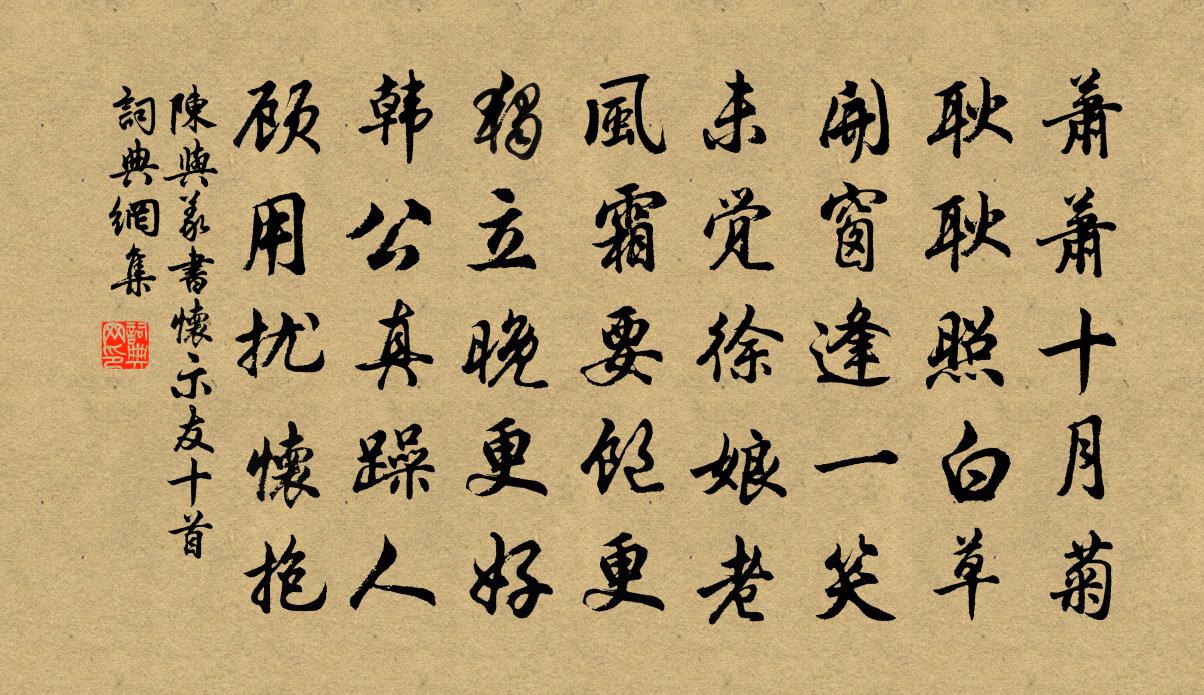 蕭蕭十月菊
耿耿照白草
開窗逢一笑
未覺徐娘老
風霜要飽更
獨立晚更好
韩公真躁人
顾用扰懷抱
陳與義書懷示友十首
詞典網集
詞典网印